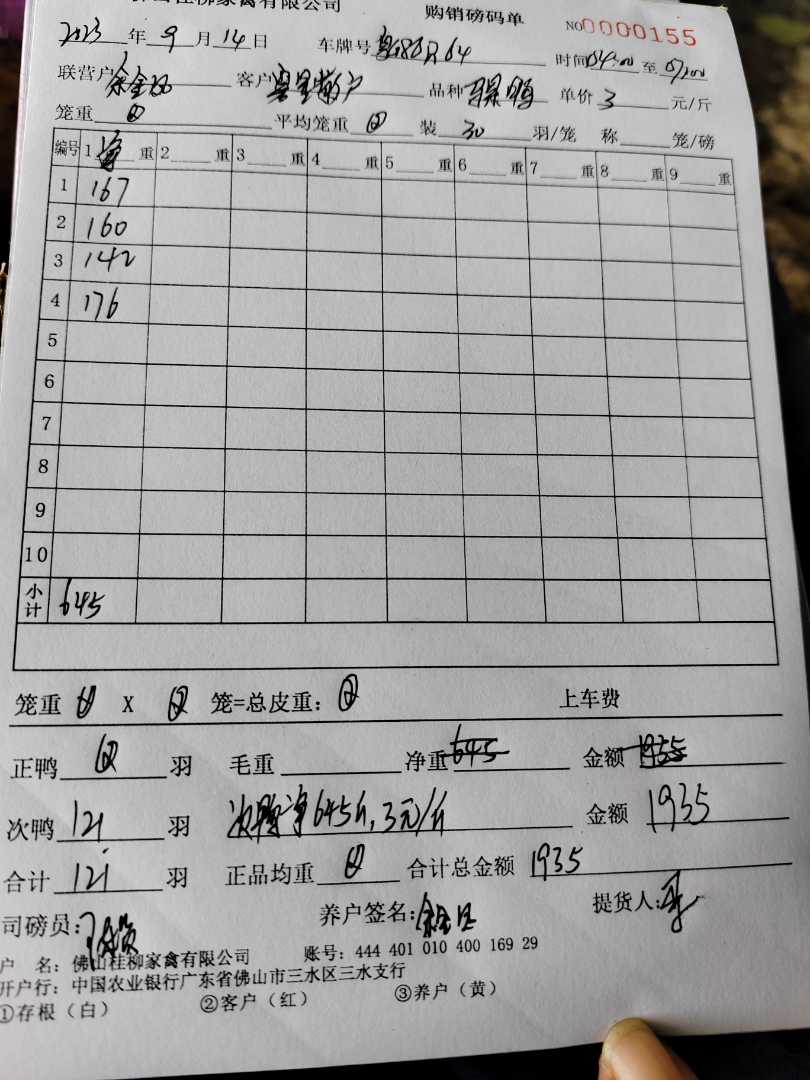 佛山桂柳家禽有限公司 购销磅码单 NO 0000155
2023年9月14日 车牌号 时间04:00至07:00
联营户 客户 品种 单价3元/斤
笼重0 平均笼重0 装30羽/笼 称 笼/磅
编号 1 重 2 重 3 重 4 重 5 重 6 重 7 重 8 重 9 重
1 167
2 160
3 142
4 176
5
6
7
8
9
10
小计 645
笼重 0 X 0 笼=总皮重: 0 上车费
正鸭 0 羽 毛重 净重 645 金额 1935
次鸭 121 羽 次鸭净645斤,3元/斤 金额 1935
合计 121 羽 正品均重 0 合计总金额 1935
司磅员: 养户签名: 提货人:
户 名: 佛山桂柳家禽有限公司 账号: 444 401 010 400 169 29
开户行: 中国农业银行广东省佛山市三水区三水支行
①存根(白) ②客户(红) ③养户(黄)